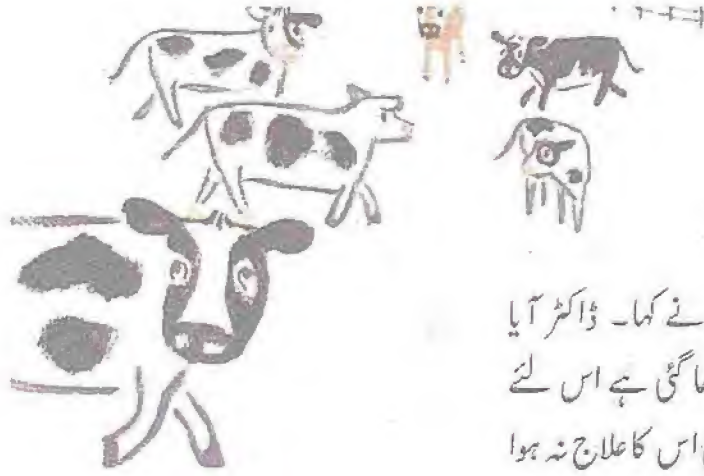 نے کہا۔ ڈاکٹر آیا
گئی ہے اس لئے
اس کا علاج نہ ہوا